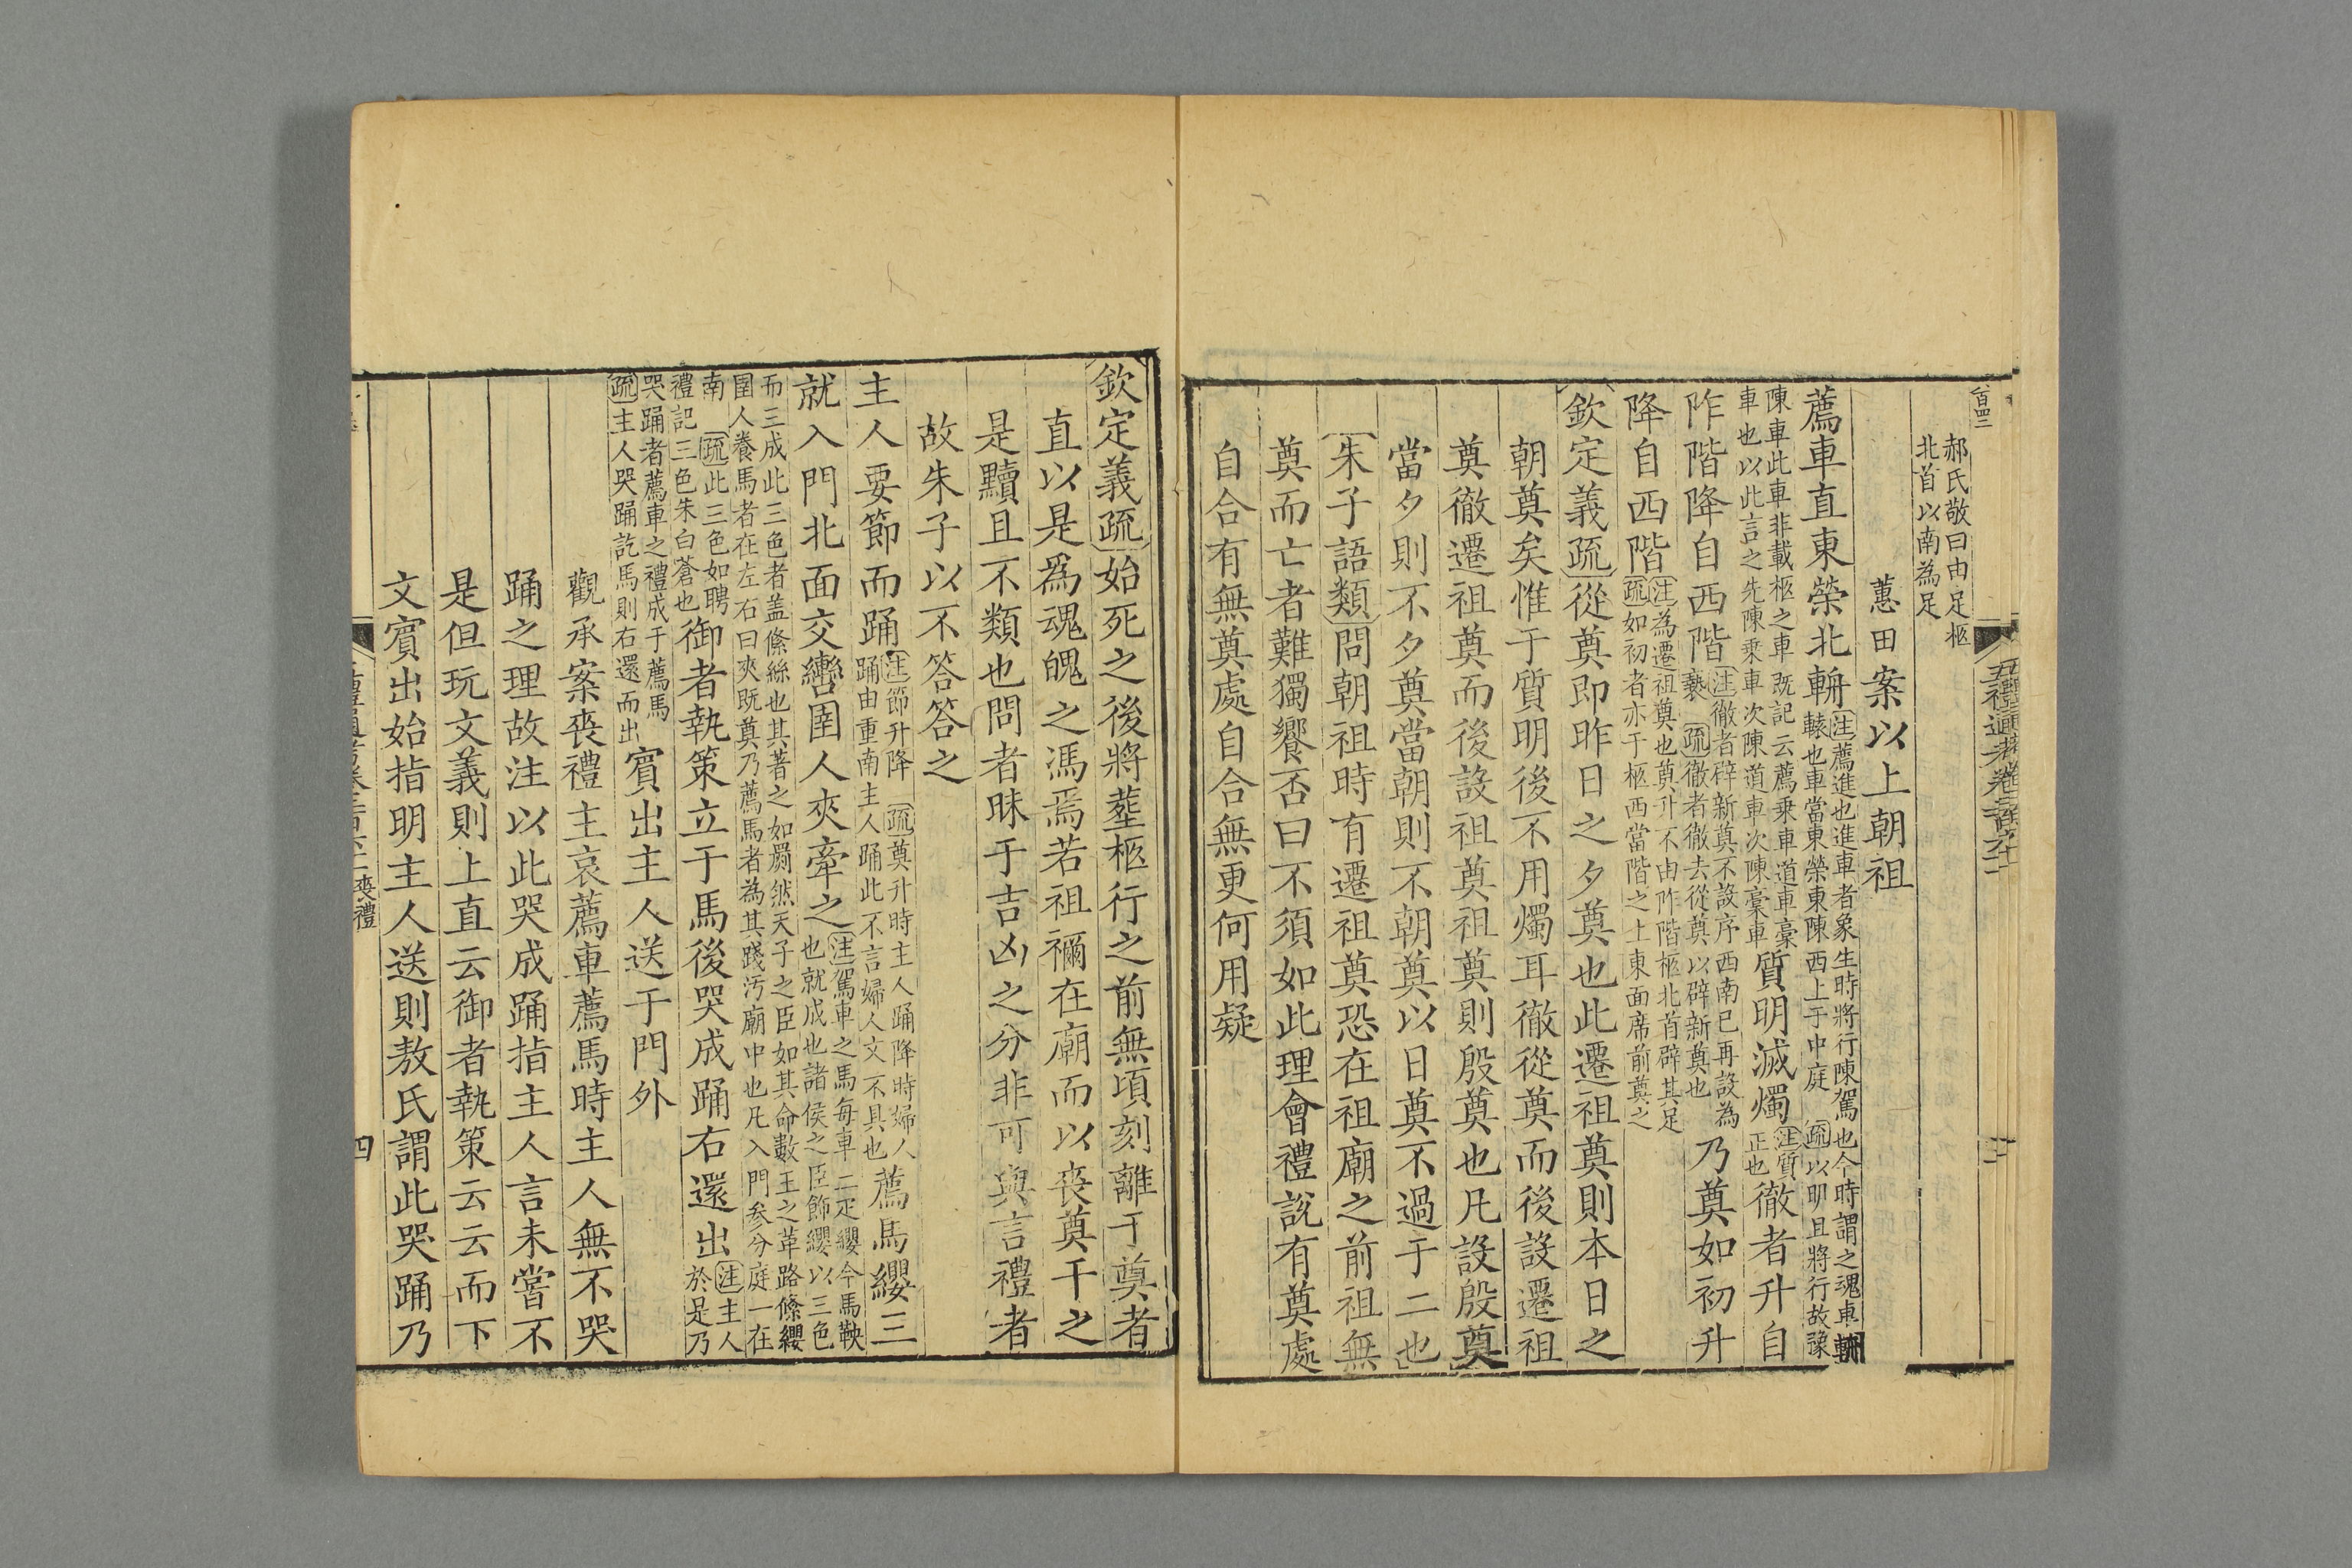 百四二
五禮通考卷二百六十一
三
郝氏敬曰由足柩
北首以南為足
蕙田案以上朝祖
薦車直東榮北輈
注薦進也進車者象生時將行陳駕也今時謂之魂車輈
轅也車當東榮東陳西上于中庭 疏以明且將行故豫
陳車此車非載柩之車既記云薦乗車道車槀
車也以此言之先陳乗車次陳道車次陳槀車
質明滅燭
注質
正也
徹者升自
阼階降自西階
注徹者辟新奠不設序西南已再設為
褻 疏徹者徹去從奠以辟新奠也
乃奠如初升
降自西階
注為遷祖奠也奠升不由阼階柩北首辟其足
疏如初者亦于柩西當階之上東面席前奠之
欽定義疏從奠即昨日之夕奠也此遷祖奠則本日之
朝奠矣惟于質明後不用燭耳徹從奠而後設遷祖
奠徹遷祖奠而後設祖奠祖奠則殷奠也凡設殷奠
當夕則不夕奠當朝則不朝奠以日奠不過于二也
朱子語類問朝祖時有遷祖奠恐在祖廟之前祖無
奠而亡者難獨饗否曰不須如此理會禮說有奠處
自合有無奠處自合無更何用疑
欽定義疏始死之後將塟柩行之前無頃刻離于奠者
直以是爲魂魄之馮焉若祖禰在廟而以喪奠干之
是黷且不類也問者昧于吉凶之分非可與言禮者
故朱子以不答答之
主人要節而踊
注節升降 疏奠升時主人踊降時婦人
踊由重南主人踊此不言婦人文不具也
薦馬纓三
就入門北面交轡圉人夾牽之
注駕車之馬每車二疋纓今馬鞅
也就成也諸侯之臣飾纓以三色
而三成此三色者盖絛絲也其著之如罽然天子之臣如其命數王之革路絛纓
圉人養馬者在左右曰夾既奠乃薦馬者為其踐汚廟中也凡入門参分庭一在
南 疏此三色如聘
禮記三色朱白蒼也
御者執策立于馬後哭成踊右還出
注主人
於是乃
哭踊者薦車之禮成于薦馬
疏主人哭踊訖馬則右還而出
賓出主人送于門外
觀承案喪禮主哀薦車薦馬時主人無不哭
踊之理故注以此哭成踊指主人言未嘗不
是但玩文義則上直云御者執策云云而下
文賓出始指明主人送則敖氏謂此哭踊乃
喪禮
四